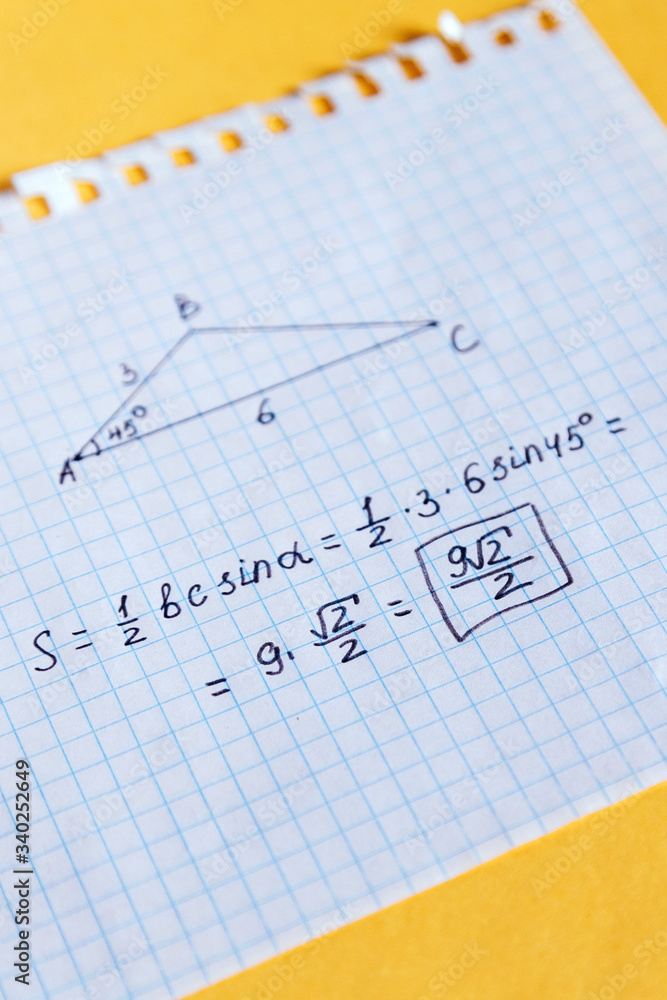 B
3
C
45°
6
A
S = 1/2 bc sin α = 1/2 · 3 · 6 sin 45° =
= 9 · √2/2 = 9√2/2
Adobe Stock | #340252649